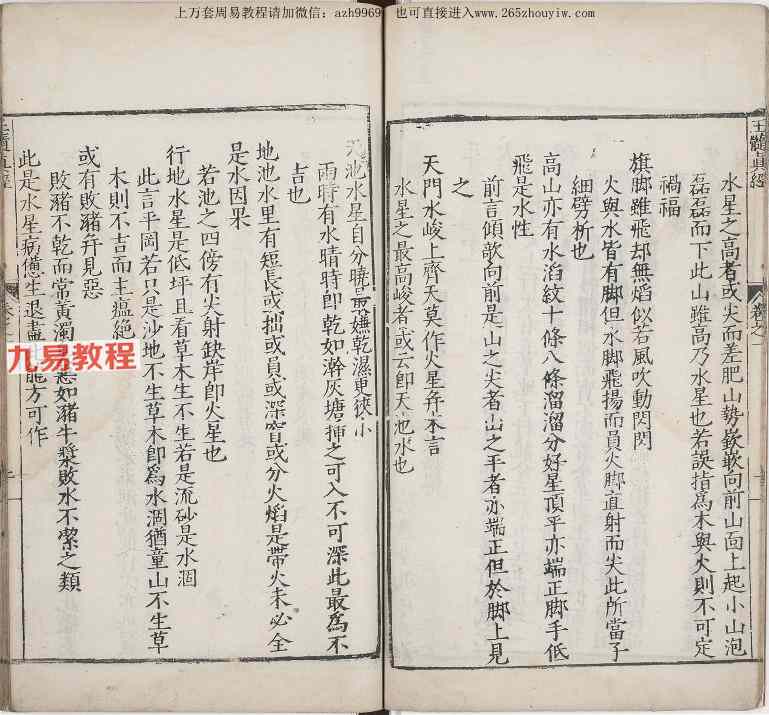 上万套周易教程请加微信：azh9969 也可直接进入www.265zhouyiw.com
水星之高者或尖而差肥山勢嵌嵌向前山面上起小山泡
磊磊而下此山雖高乃水星也若誤指爲木與火則不可定
禍福
旗脚雖飛却無熖似若風吹動閃閃
火與水皆有脚但水脚飛揚而員火脚直射而尖此所當子
細劈析也
高山亦有水滔紋十條八條溜溜分好星頂平亦端正脚手低
飛是水性
前言傾欹向前是山之尖者山之平者亦端正但於脚上見
之
天門水峻上齊天莫作火星弁木言
水星之最高峻者或云卽天池水也
玉髓真經
卷之
天池水星自分曉最嫌乾濕更狹小
雨時有水晴時卽乾如澣灰塘揷之可入不可深此最爲不
吉也
地池水里有短長或拙或員或深窅或分火熖是帶火未必全
是水因果
若池之四傍有尖射缺岸卽火星也
行地水星是低坪且看草木生不生若是流砂是水涸
此言平岡若只是沙地不生草木卽爲水涸猶童山不生草
木則不吉而主瘟絶
或有敗豬幷見惡
敗豬不乾而常黃濁惡如豬牛漿敗水不潔之類
此是水星病憊生退盡能方可作
玉髓真經
九易教程